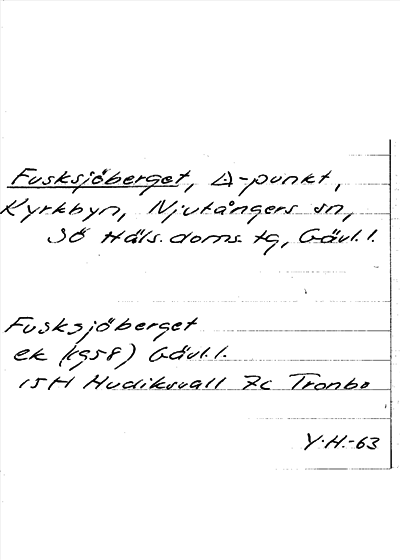 Fusksjöberget, △-punkt,
Kyrkbyn, Njutångers sn,
SÖ Häls. doms. tg, Gävl. l.
Fusksjöberget
ek (1958) Gävl. l.
15H Hudiksvall 7c Tronbo
Y.H.-63